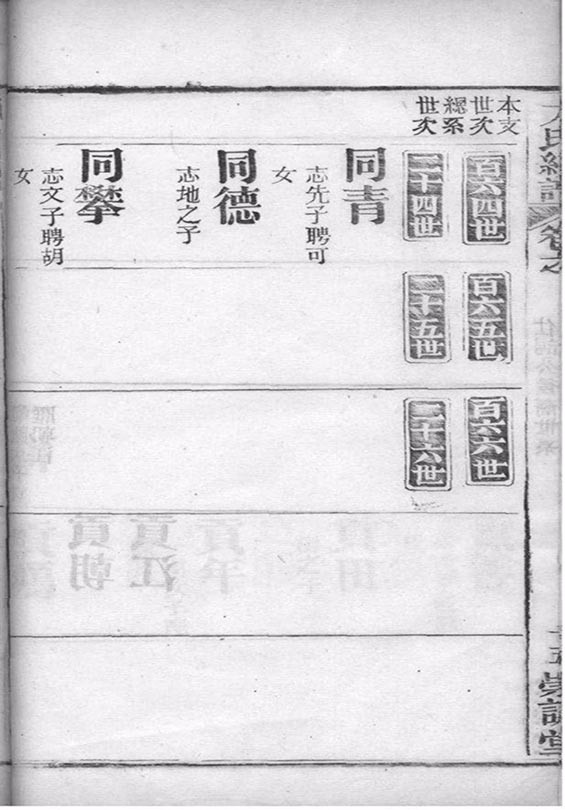 本支
世次
緫系
世次
百六四世
二十四世
同青
志先子聘可
女
同德
志地之子
同攀
志文子聘胡
女
百六五世
二十五世
百六六世
二十六世